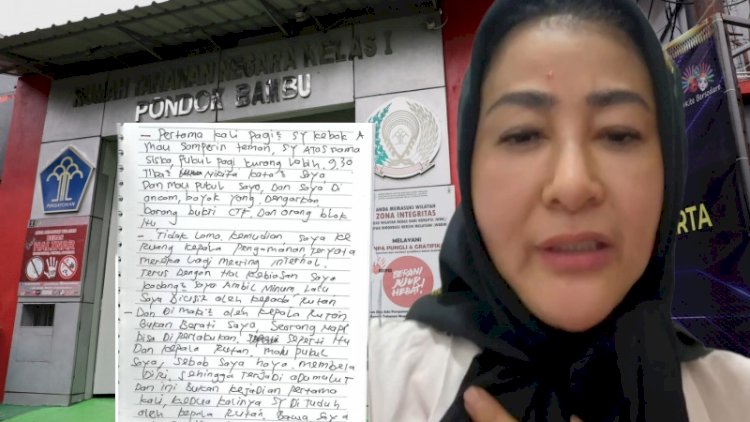 RUMAH TAHANAN NEGARA KELAS I
PONDOK BAMBU
PENGAYOMAN
HALINAR
ANDA MEMASUKI WILAYAH
ZONA INTEGRITAS
MELAYANI
TANPA PUNGLI & GRATIFIKASI
BERANI
JUJUR
HEBAT!
- Pertama kali pagi² SY kebok A
mau samperin teman, SY Atas nama
Siska, pukul pagi kurang Lebih, 9,30
Tiba² Nikita kata² Saya
Dan mau pukul Saya, Dan Saya Di
ancam, bayak yang Dengarkan
Darong bukti CTF, Dan orang blok
Itu.
- Tidak Lama kemudian Saya ke
Ruang kepala Pengamanan Teryata
mereka Lagi meeting internal.
Terus Dengan Hal kebiasan Saya
kadang² Saya Ambil Minum, Lalu
Saya Di cusir oleh kepada Rutan
- Dan Di Maki² oleh kepala Rutan
Bukan Berati Saya, Seorang Napi
Bisa Di perlakukan Seperti Itu
Dan kepala Rutan, Mau pukul
Saya, Sebab Saya haya membela
Diri, Sehingga Terjadi adu mulut
Dan ini Bukan kejadian pertama
kali, kedua kalinya SY Di Tuduh
oleh kepala Rutan, Bawa Saya